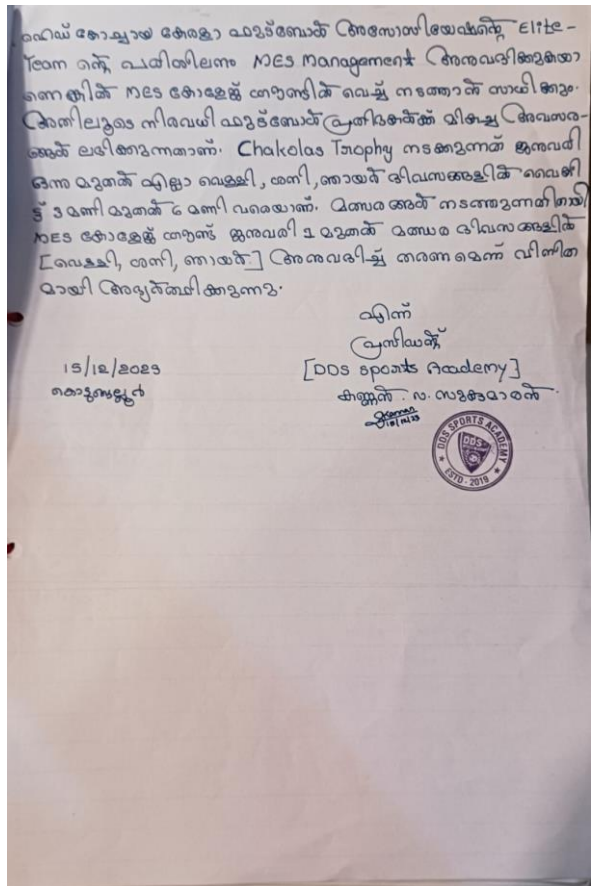 ഹെഡ് കോച്ചായ കേരളാ ഫുട്ബോൾ അസോസിയേഷന്റെ Elite-
Team ന്റെ പരിശീലനം MES Management അനുവദിക്കുകയാ
ണെങ്കിൽ MES കോളേജ് ഗ്രൗണ്ടിൽ വെച്ച് നടത്താൻ സാധിക്കും.
അതിലൂടെ നിരവധി ഫുട്ബോൾ പ്രതിഭകൾക്ക് മികച്ച അവസര-
ങ്ങൾ ലഭിക്കുന്നതാണ്. Chakolas Trophy നടക്കുന്നത് ജനുവരി
ഒന്നു മുതൽ എല്ലാ വെള്ളി, ശനി, ഞായർ ദിവസങ്ങളിൽ വൈകി
ട്ട് 3 മണി മുതൽ 6 മണി വരെയാണ്. മത്സരങ്ങൾ നടത്തുന്നതിനായി
MES കോളേജ് ഗ്രൗണ്ട് ജനുവരി 1 മുതൽ മത്സര ദിവസങ്ങളിൽ
[വെള്ളി, ശനി, ഞായർ] അനുവദിച്ച് തരണമെന്ന് വിനീത
മായി അഭ്യർത്ഥിക്കുന്നു.
എന്ന്
പ്രസിഡന്റ്
15/12/2023
[DDS Sports Academy]
കൊടുങ്ങല്ലൂർ
കണ്ണൻ. വ. സുകുമാരൻ.
DDS SPORTS ACADEMY
DDS
ESTD - 2019